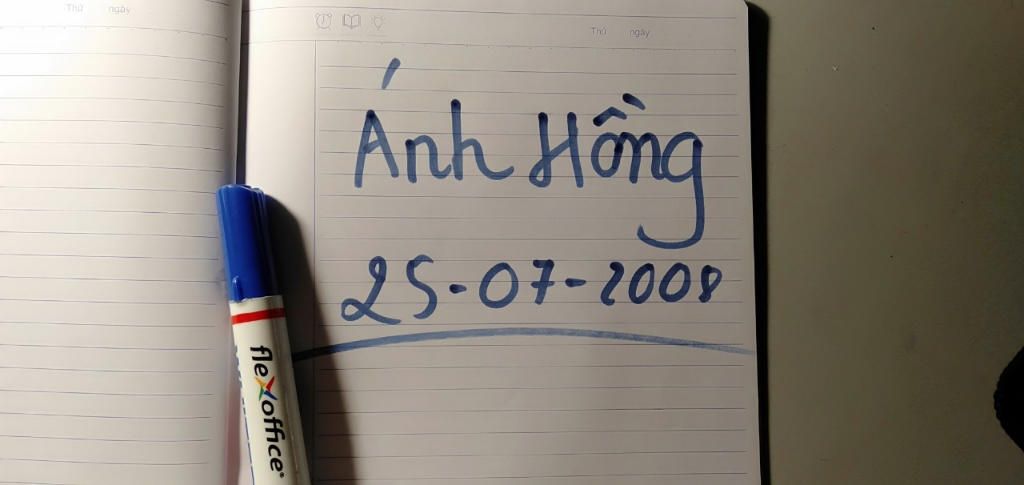 Thứ ngày
Thứ ngày
Ánh Hồng
25-07-2008
flexoffice